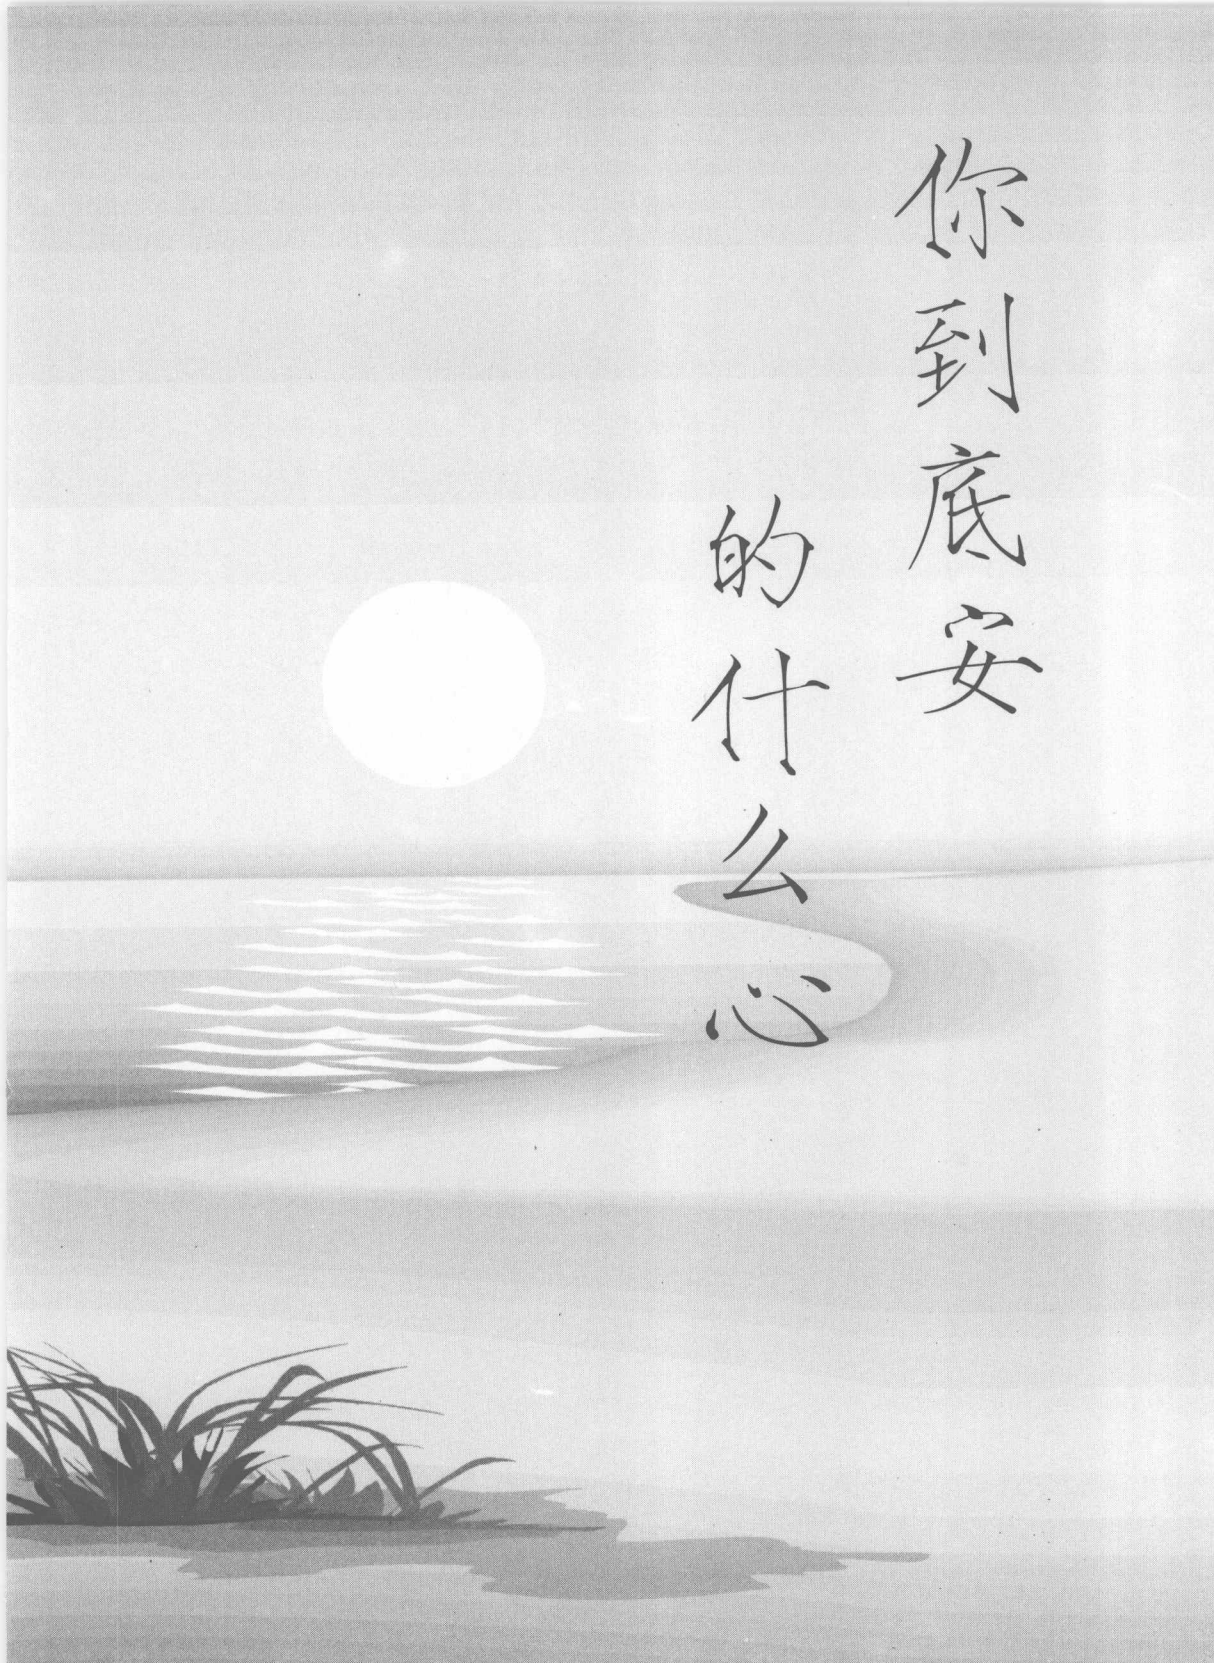 你到底安
的什么心